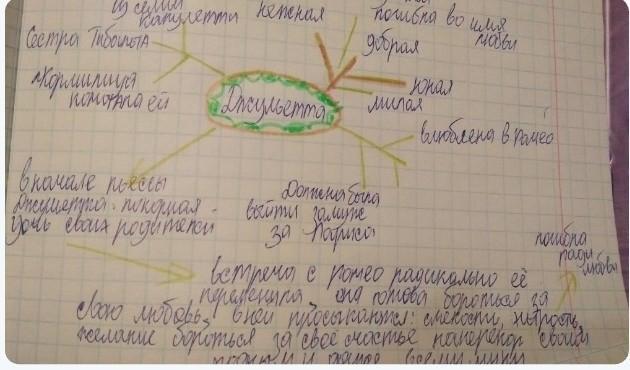 из семьи
Капулетти
нежная
погибла во имя
любви
Сестра Тибальта
добрая
Кормилица
помогала ей
Джульетта
юная
милая
влюблена в Ромео
вначале пьессы
Джульетта - покорная
дочь своих родителей
Должна была
выйти замуж
за Париса
погибла
ради
любви
встреча с Ромео радикально её
переменила она готова бороться за
свою любовь, в ней просыпаются: смелость, хитрость,
желание бороться за своё счастье наперекор своей
и всему миру